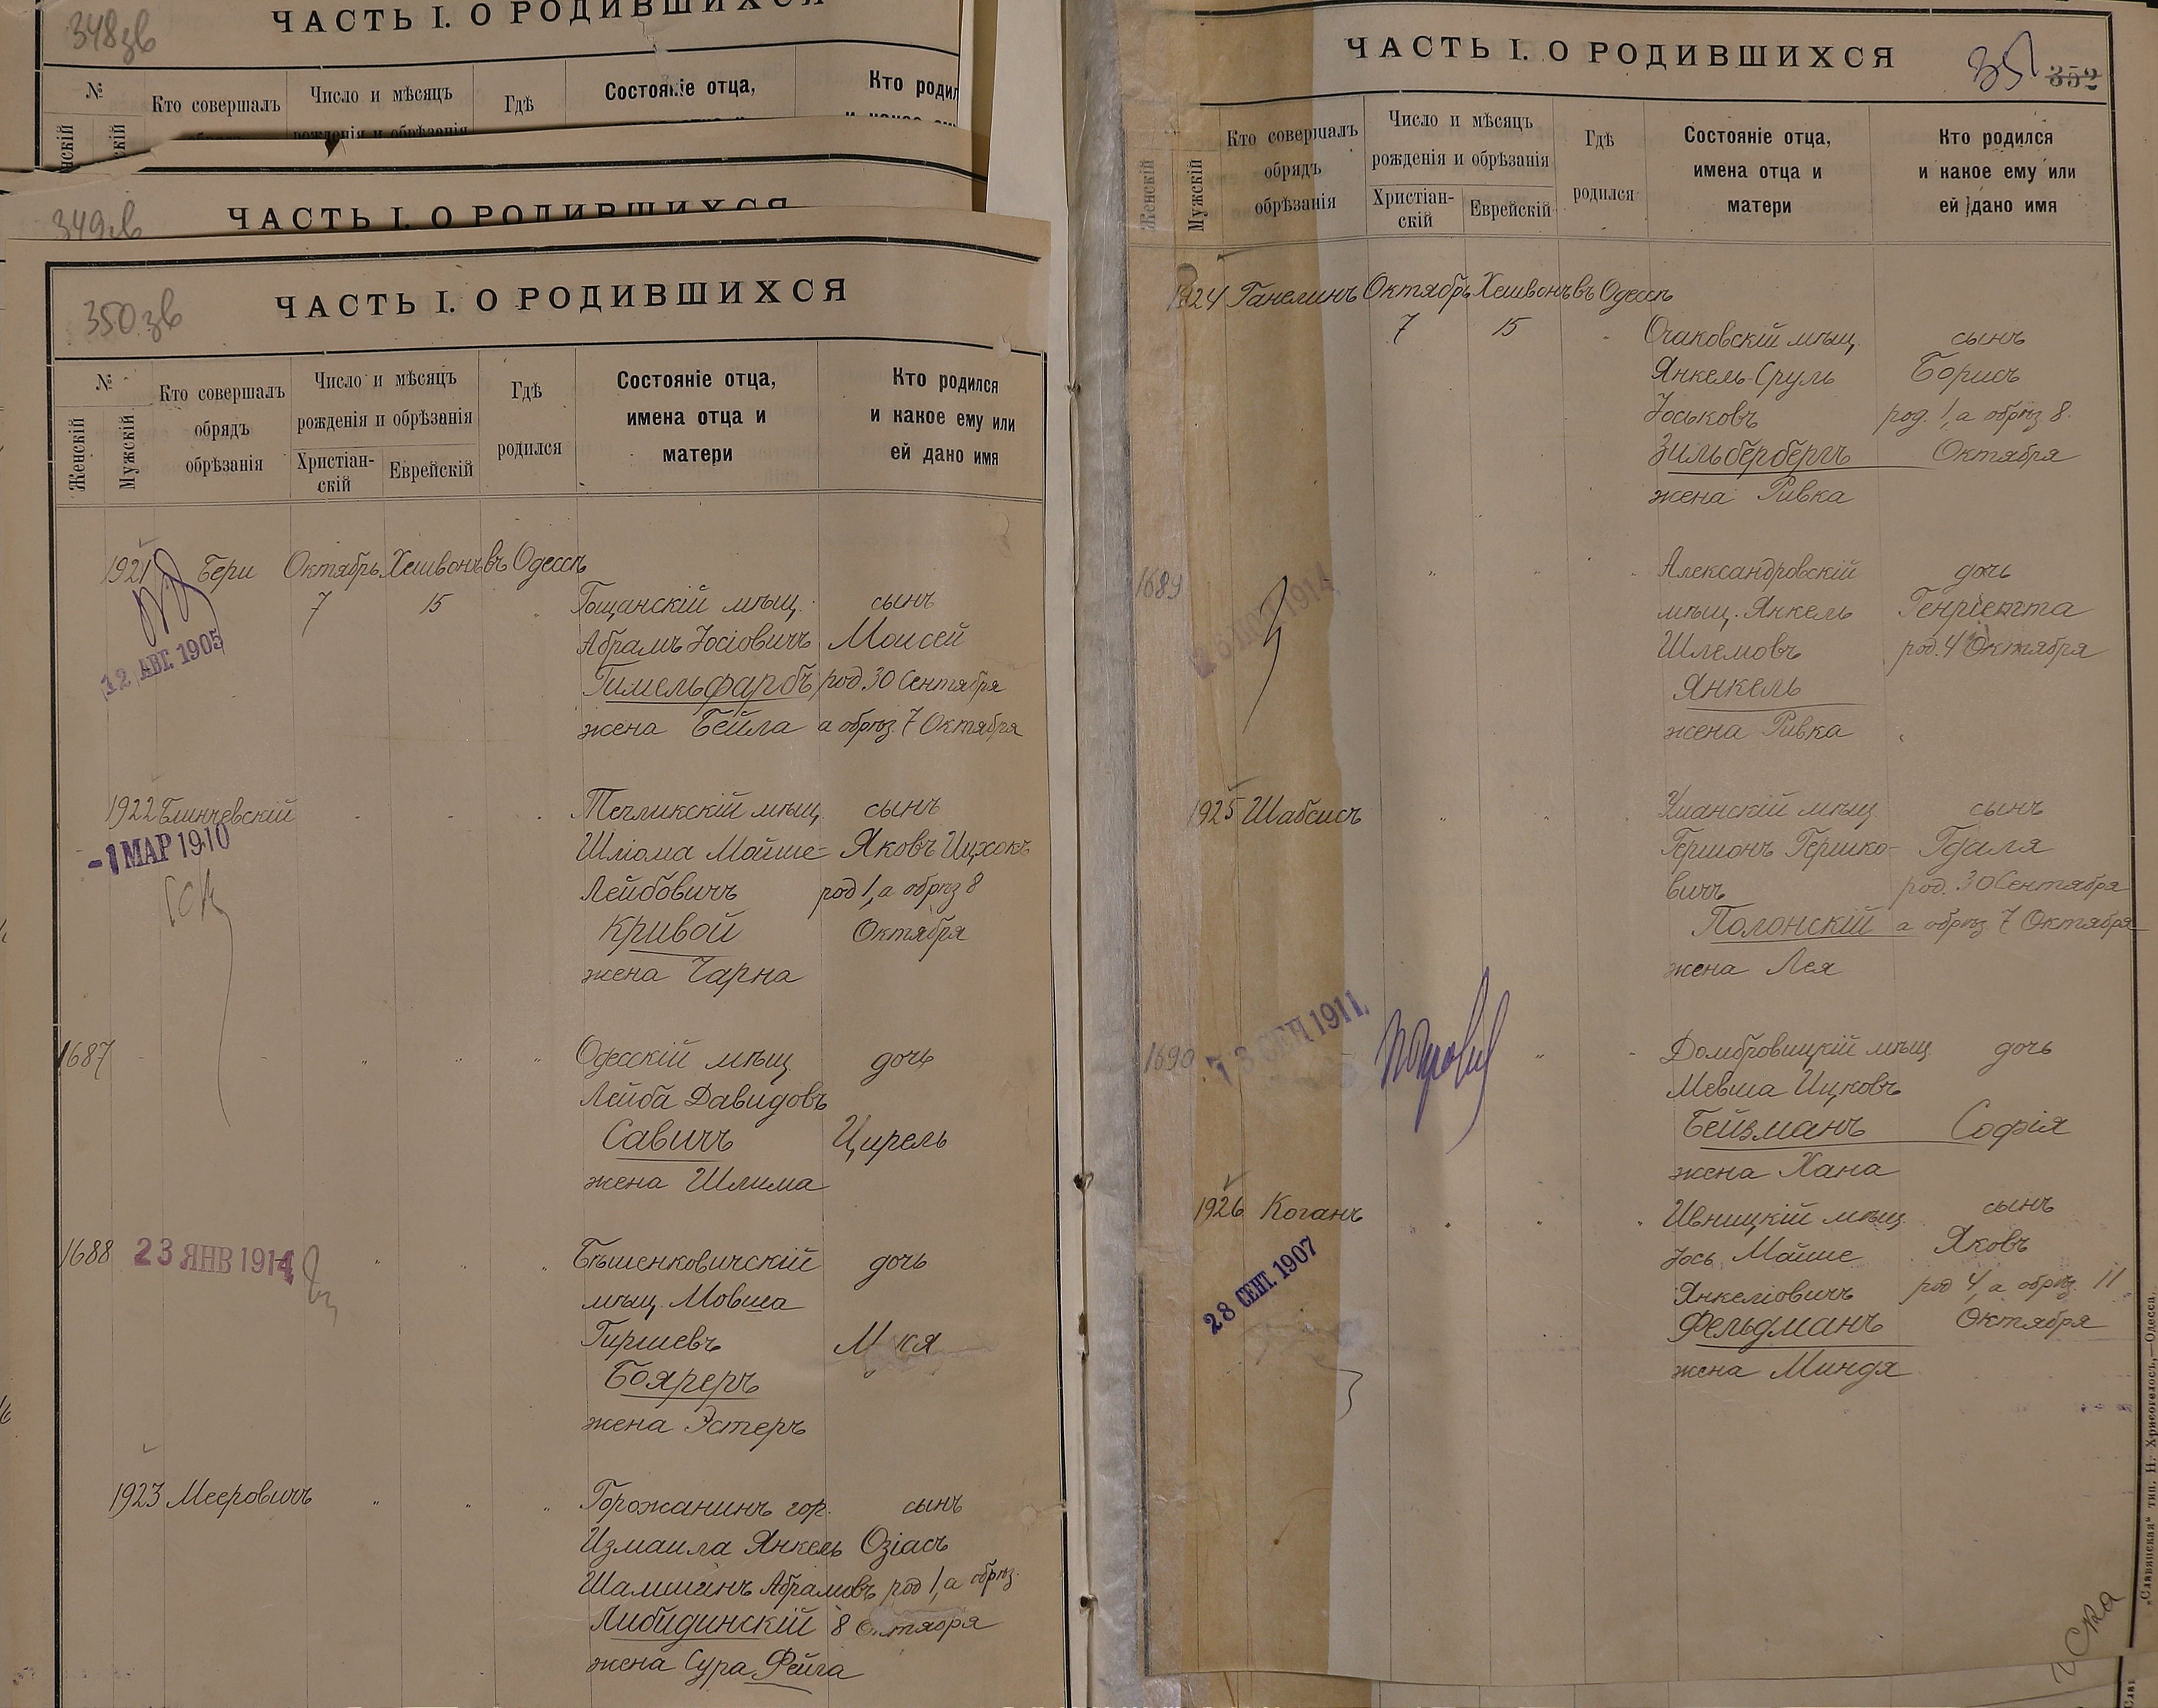 348зв
ЧАСТЬ I. О РОДИВШИХСЯ
№
Кто совершалъ
Число и мѣсяцъ
рожденія и обрѣзанія
Гдѣ
Состояніе отца,
349зв
ЧАСТЬ I. О РОДИВШИХСЯ
350зв
ЧАСТЬ I. О РОДИВШИХСЯ
№
Женскій
Мужскій
Кто совершалъ
обрядъ
обрѣзанія
Число и мѣсяцъ
рожденія и обрѣзанія
Христіан-
скій
Еврейскій
Гдѣ
родился
Состояніе отца,
имена отца и
матери
Кто родился
и какое ему или
ей дано имя
1921 Бери Октябрь Хешвонъ въ Одессѣ
7 15 Гощанскій мѣщ. сынъ
Абрамъ Іосіовичъ Моисей
12 АВГ. 1905
Гимельфарбъ род. 30 Сентября
жена Бейла а обрѣз. 7 Октября
1922 Блинчевскій Тепликскій мѣщ. сынъ
-1 МАР 1910
Шліома Мойше- Яковъ Ицхокъ
Лейбовичъ род 1, а обрѣз 8
Кривой Октября
жена Чарна
1687 Одесскій мѣщ. дочь
Лейба Давидовъ
Савичъ Цирель
жена Шлима
1688 23 ЯНВ 1914 Бѣшенковичскій дочь
мѣщ. Мовша
Гиршевъ
Бояреръ
жена Эстеръ
1923 Мееровичъ Горожанинъ гор. сынъ
Измаила Янкель Озіасъ
Шамшинъ Абрамовъ род 1, а обрѣз.
Либидинскій 8 Октября
жена Сура Фейга
ЧАСТЬ I. О РОДИВШИХСЯ
351 352
Женскій
Мужскій
Кто совершалъ
обрядъ
обрѣзанія
Число и мѣсяцъ
рожденія и обрѣзанія
Христіан-
скій
Еврейскій
Гдѣ
родился
Состояніе отца,
имена отца и
матери
Кто родился
и какое ему или
ей дано имя
1924 Ганелинъ Октябрь Хешвонъ въ Одессѣ
7 15 Очаковскій мѣщ. сынъ
Янкель-Сруль Борисъ
Іоськовъ род. 1, а обрѣз 8.
Зильбербергъ Октября
жена Ривка
1689 Александровскій дочь
мѣщ. Янкель Генріетта
Шлемовъ род. 4 Октября
Янкель
жена Ривка
1925 Шабсисъ Уманскій мѣщ. сынъ
Гершонъ Гершко- Гдаля
вичъ род. 30 Сентября
Полонскій а обрѣз. 7 Октября
жена Лея
1690 СЕП 1911 Домбровицкій мѣщ. дочь
Мевша Ицковъ
Бейзманъ Софія
жена Хана
1926 Коганъ Ивницкій мѣщ. сынъ
Іось Мойше Яковъ
28 СЕНТ. 1907
Янкеліовичъ род 4, а обрѣз. 11
Фельдманъ Октября
жена Миндя
„Славянская“ тип. Н. Хрисогелосъ,—Одесса.